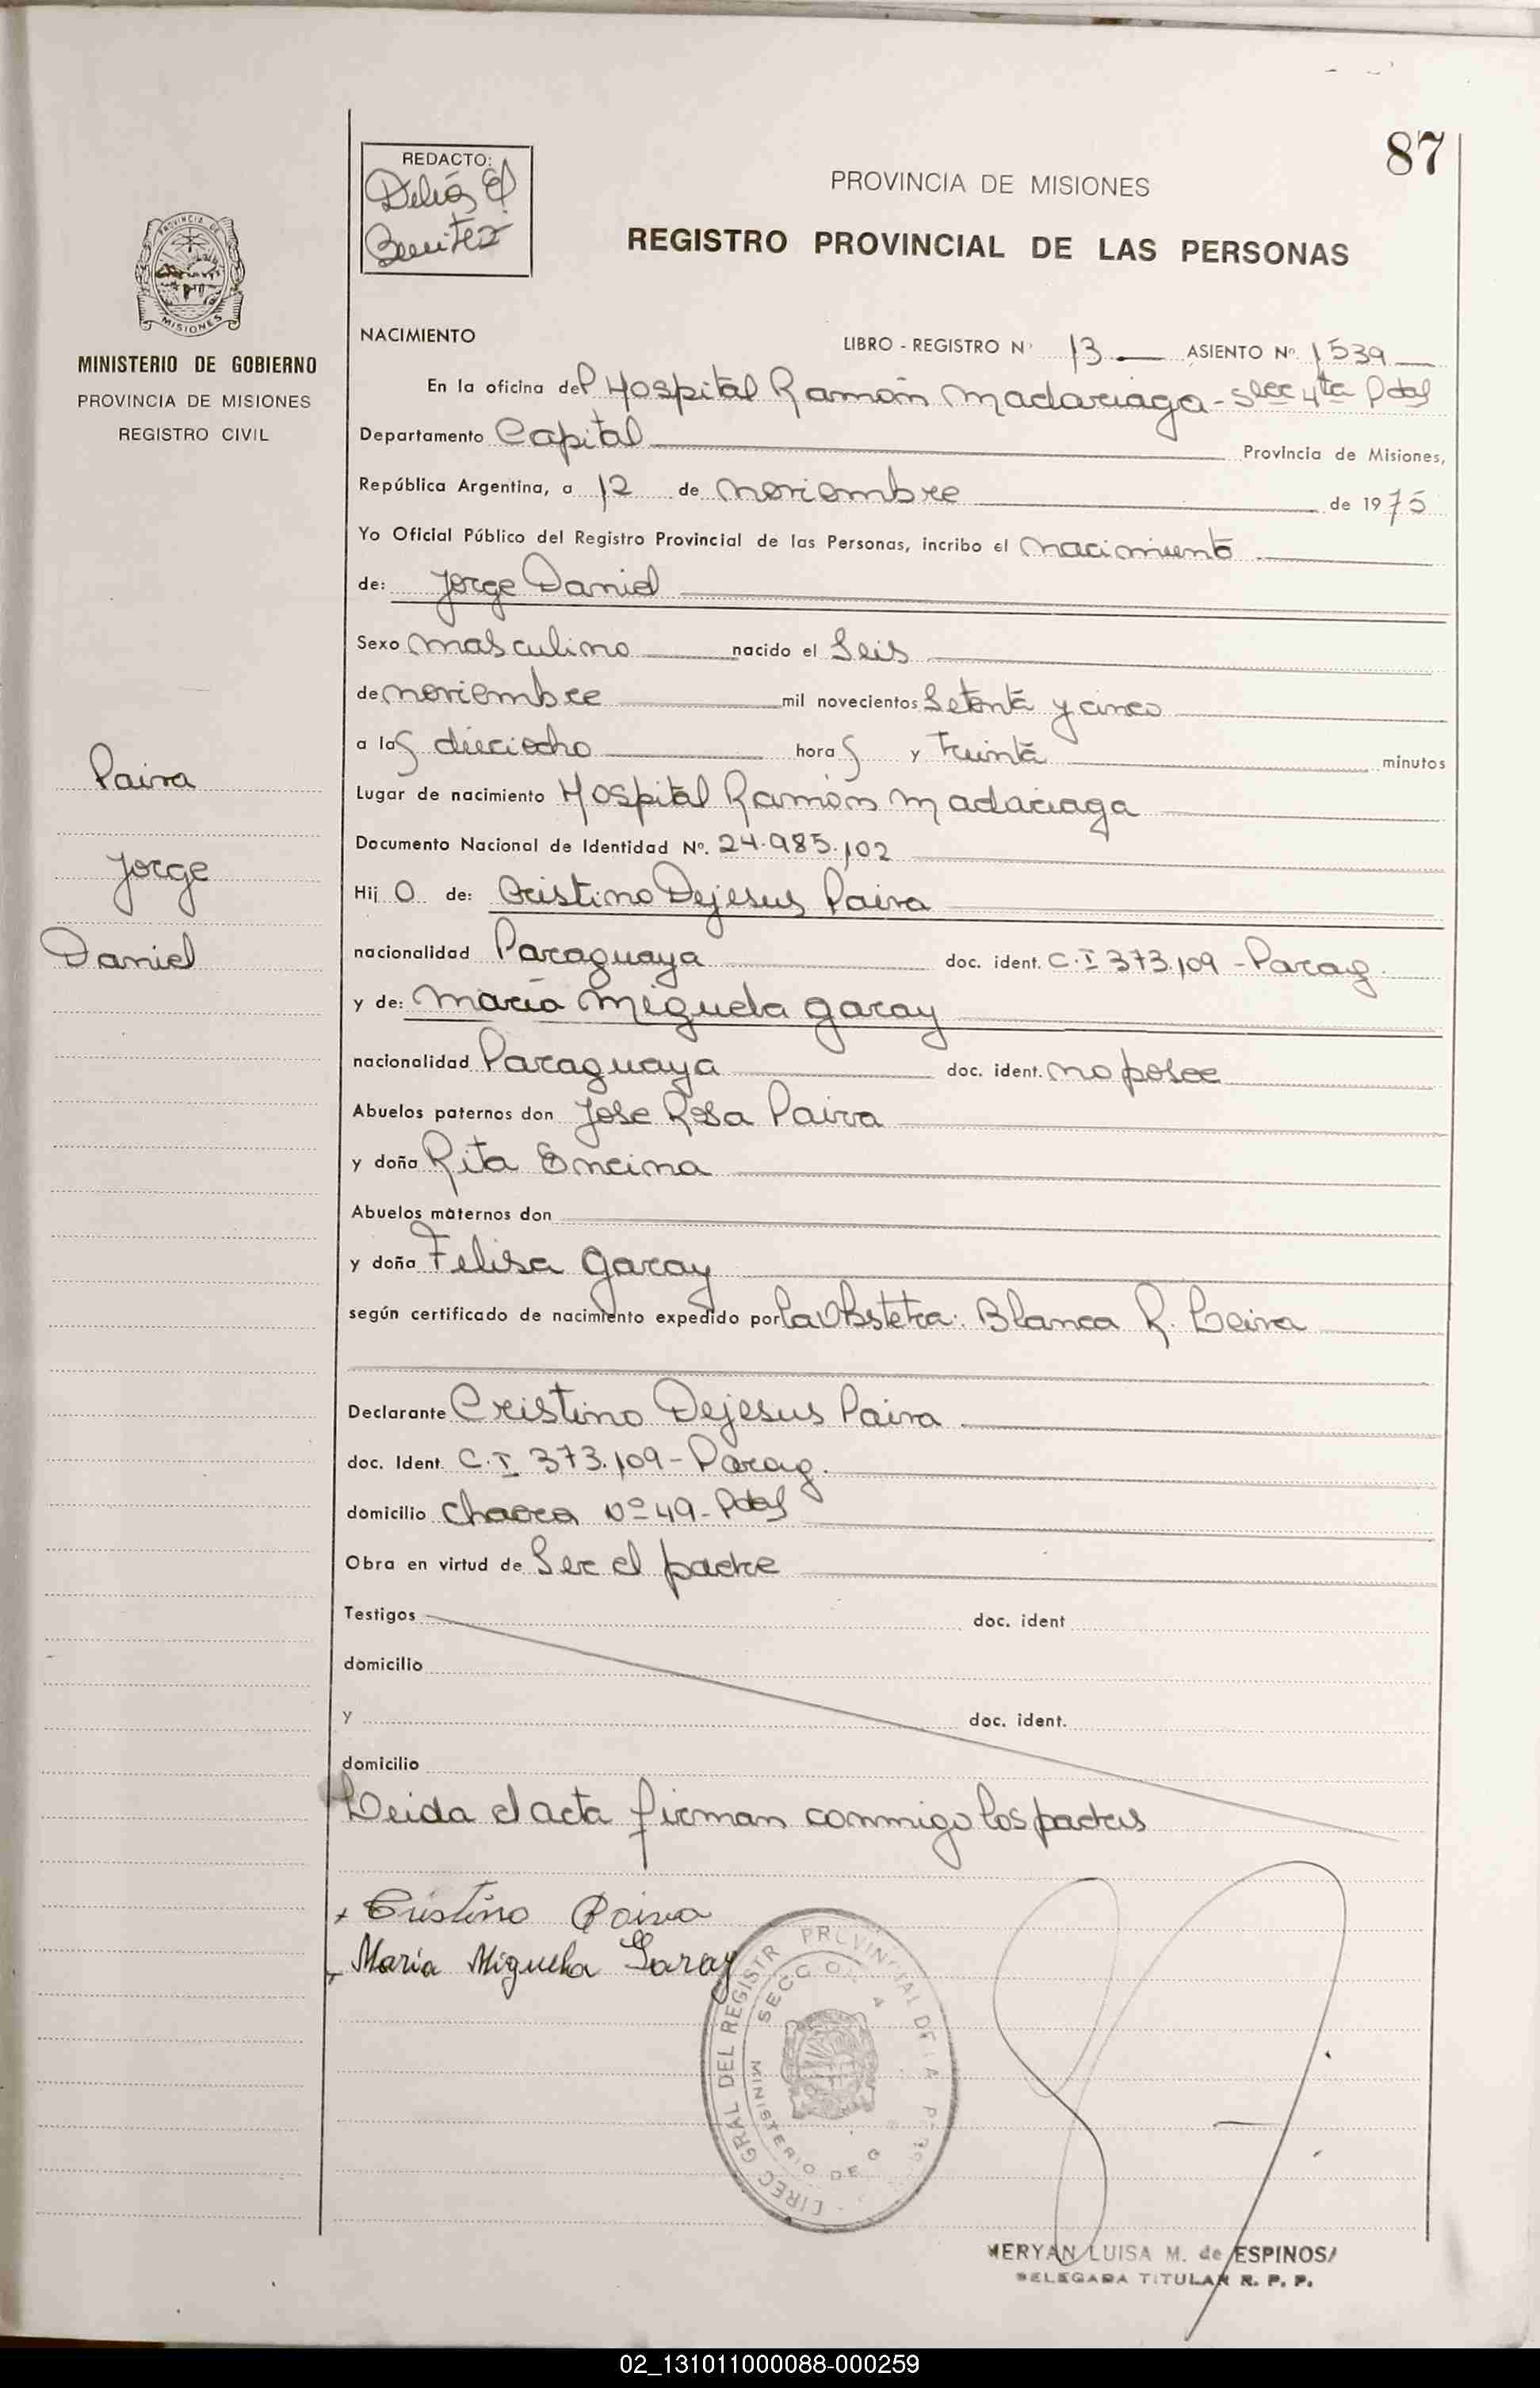 87
REDACTO:
Delia E.
Benitez
PROVINCIA DE MISIONES
REGISTRO PROVINCIAL DE LAS PERSONAS
PROVINCIA DE
MISIONES
MINISTERIO DE GOBIERNO
PROVINCIA DE MISIONES
REGISTRO CIVIL
Paiva
Jorge
Daniel
NACIMIENTO LIBRO - REGISTRO Nº 13 ASIENTO Nº 1539
En la oficina del Hospital Ramón Madariaga - Secc 4ta Pdas
Departamento Capital Provincia de Misiones,
República Argentina, a 12 de noviembre de 1975
Yo Oficial Público del Registro Provincial de las Personas, incribo el nacimiento
de: Jorge Daniel
Sexo masculino nacido el Seis
de noviembre mil novecientos Setenta y cinco
a las dieciocho horas y Treinta minutos
Lugar de nacimiento Hospital Ramón Madariaga
Documento Nacional de Identidad Nº. 24.985.102
Hij o de: Cristino Dejesus Paiva
nacionalidad Paraguaya doc. ident. C.I 373.109 - Parag.
y de: María Miguela Garay
nacionalidad Paraguaya doc. ident. no posee
Abuelos paternos don Jose Rosa Paiva
y doña Rita Encina
Abuelos maternos don
y doña Felisa Garay
según certificado de nacimiento expedido por la Obstetra: Blanca R. Leiva
Declarante Cristino Dejesus Paiva
doc. Ident. C.I 373.109 - Parag.
domicilio Chacra Nº 49 - Pdas
Obra en virtud de Ser el padre
Testigos doc. ident
domicilio
y doc. ident.
domicilio
Leida el acta firman conmigo los padres
+ Cristino Paiva
+ María Miguela Garay
DIREC GRAL DEL REGISTR PROVINCIAL DE LA
SECCION 4
MINISTERIO DE G
MERYAN LUISA M. de ESPINOS
DELEGADA TITULAR R. P. P.
02_131011000088-000259